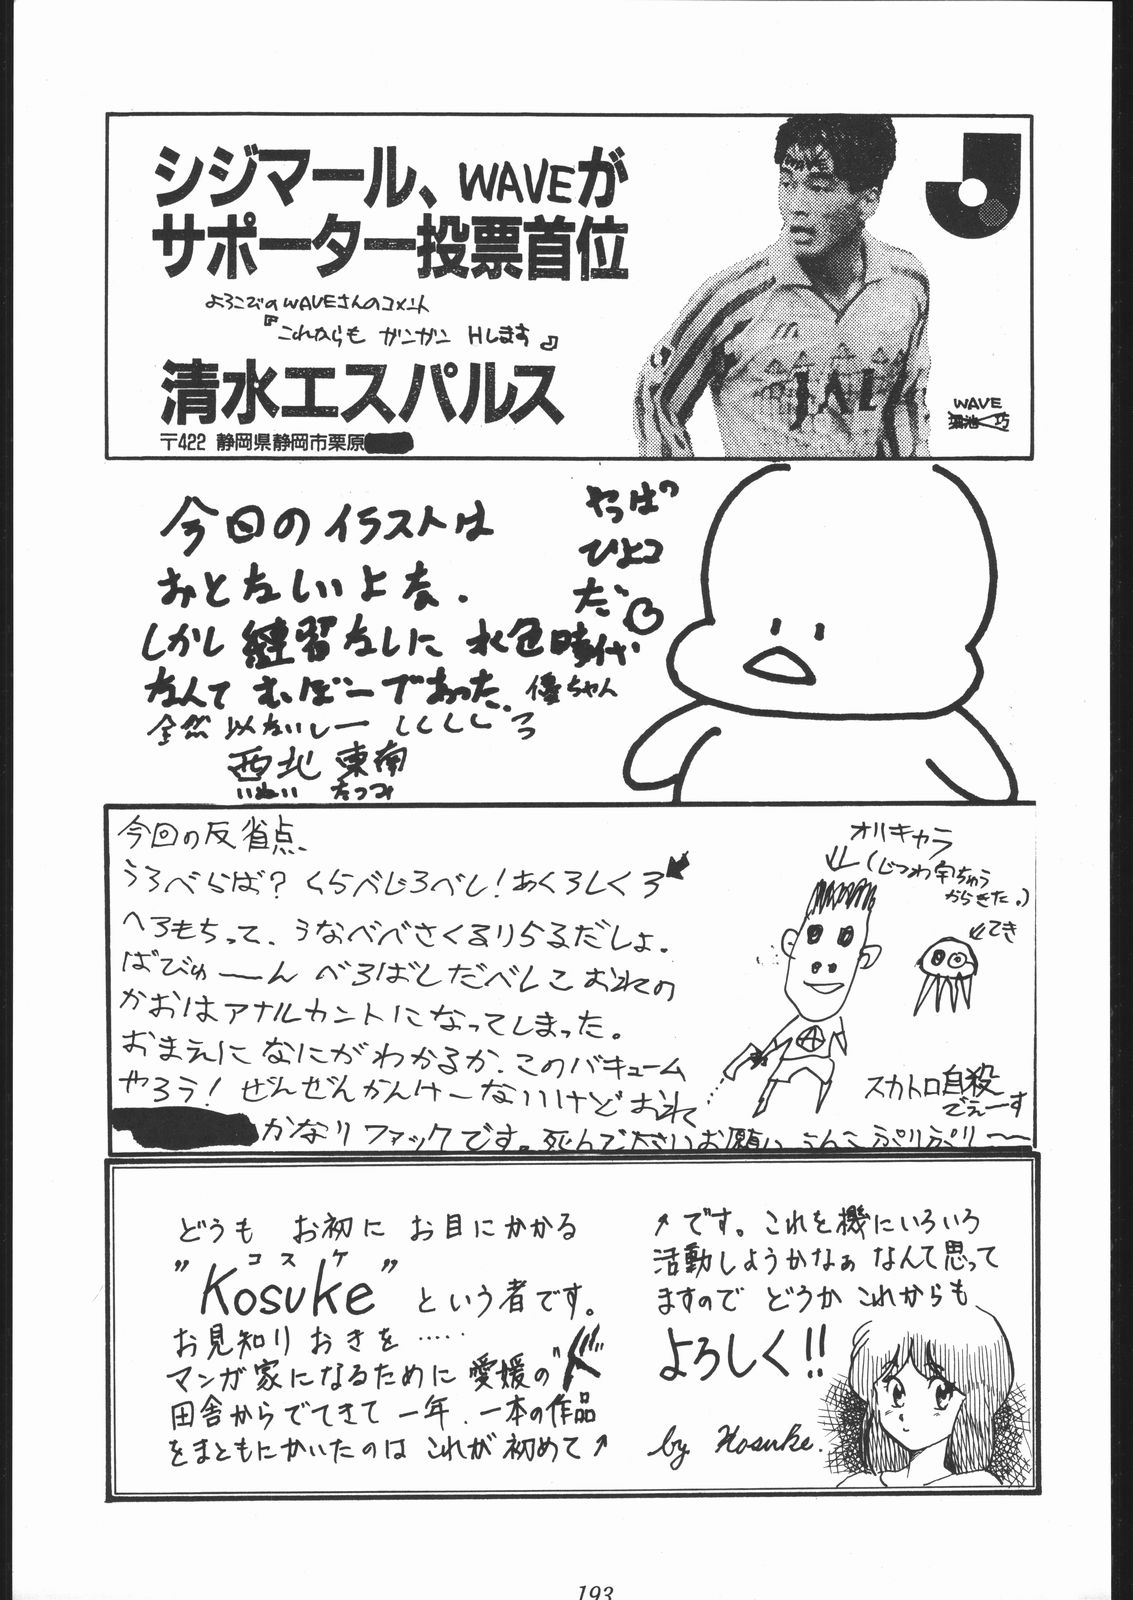 シジマール、WAVEが
サポーター投票首位
よろこびのWAVEさんのコメント
『これからも ガンガン Hします』
清水エスパルス
〒422 静岡県静岡市栗原
WAVE
今回のイラストは
おとなしいよな.
しかし 練習なしに 水色時代
なんて むぼーであった. 優ちゃん
全然 以ないしー しくしくしく
西北 東南
いぬい たつみ
やっぱ
ひよコ
だ
今回の反省点
うろべらば? くらべじろべし! あくろしくろ
へろもちって、うなべべさくるりらるだしょ。
ばびゅーーん べろばしだべしこ おれの
かおはアナルカントになってしまった。
おまえに なにがわかるか. このバキューム
やろう! ぜんぜんかんけーないけど おれ
かなりファックです。死んで下さいお願い うんこ ぷりぷりーー
オリキャラ
(じつわ宇ちゅう
からきた。)
てき
スカトロ自殺
でぇーす
どうも お初に お目にかかる
コスケ
"Kosuke" という者です。
お見知り おきを ……
マンガ家になるために 愛媛の"ド"
田舎からでてきて 一年. 一本の作品
をまともにかいたのは これが 初めて
です。これを機にいろいろ
活動しようかなぁ なんて思って
ますので どうか これからも
よろしく!!
by Kosuke.
193